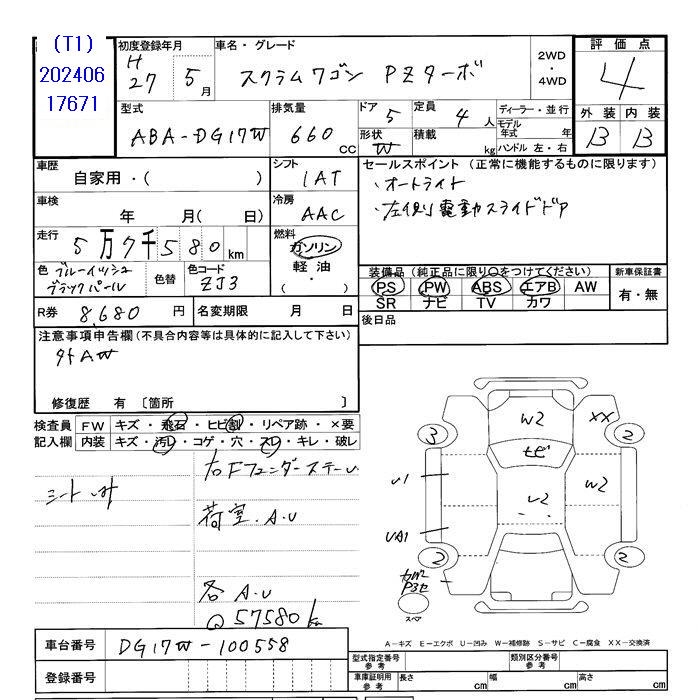 (T1)
202406
17671
初度登録年月
H
27 5月
車名・グレード
スクラムワゴン PZターボ
2WD
・
4WD
評価点
4
外装 内装
B B
型式
ABA-DG17W
排気量
660 cc
ドア 5
形状 W
定員 4人
積載 kg
ディーラー・並行
モデル年式 年
ハンドル 左・右
車歴
自家用・( )
車検
年 月( 日)
走行
5万7千580km
色 ブルーイッシュ
ブラックパール
色替
色コード
ZJ3
シフト
1AT
冷房
AAC
燃料
ガソリン
・
軽油
( ・ )
セールスポイント(正常に機能するものに限ります)
・オートライト
・左側電動スライドドア
装備品(純正品に限り○をつけてください)
PS PW ABS エアB AW
SR ナビ TV カワ
新車保証書
有・無
R券 8,680 円
名変期限 月 日
後日品
注意事項申告欄(不具合内容等は具体的に記入して下さい)
外AW
修復歴 有 〔箇所 〕
検査員 FW キズ・飛石・ヒビ割・リペア跡・×要
記入欄 内装 キズ・汚レ・コゲ・穴・スレ・キレ・破レ
右FフェンダーステーU
荷室.A.U
各A.U
@57580k
W2
XX
3
2
U1
W2
U2
UA1
2
2
スペア
A-キズ E-エクボ U-凹み W-補修跡 S-サビ C-腐食 XX-交換済
車台番号 DG17W-100558
登録番号
型式指定番号
参考
類別区分番号
参考
車庫証明用
参考
長さ cm 幅 cm 高さ cm